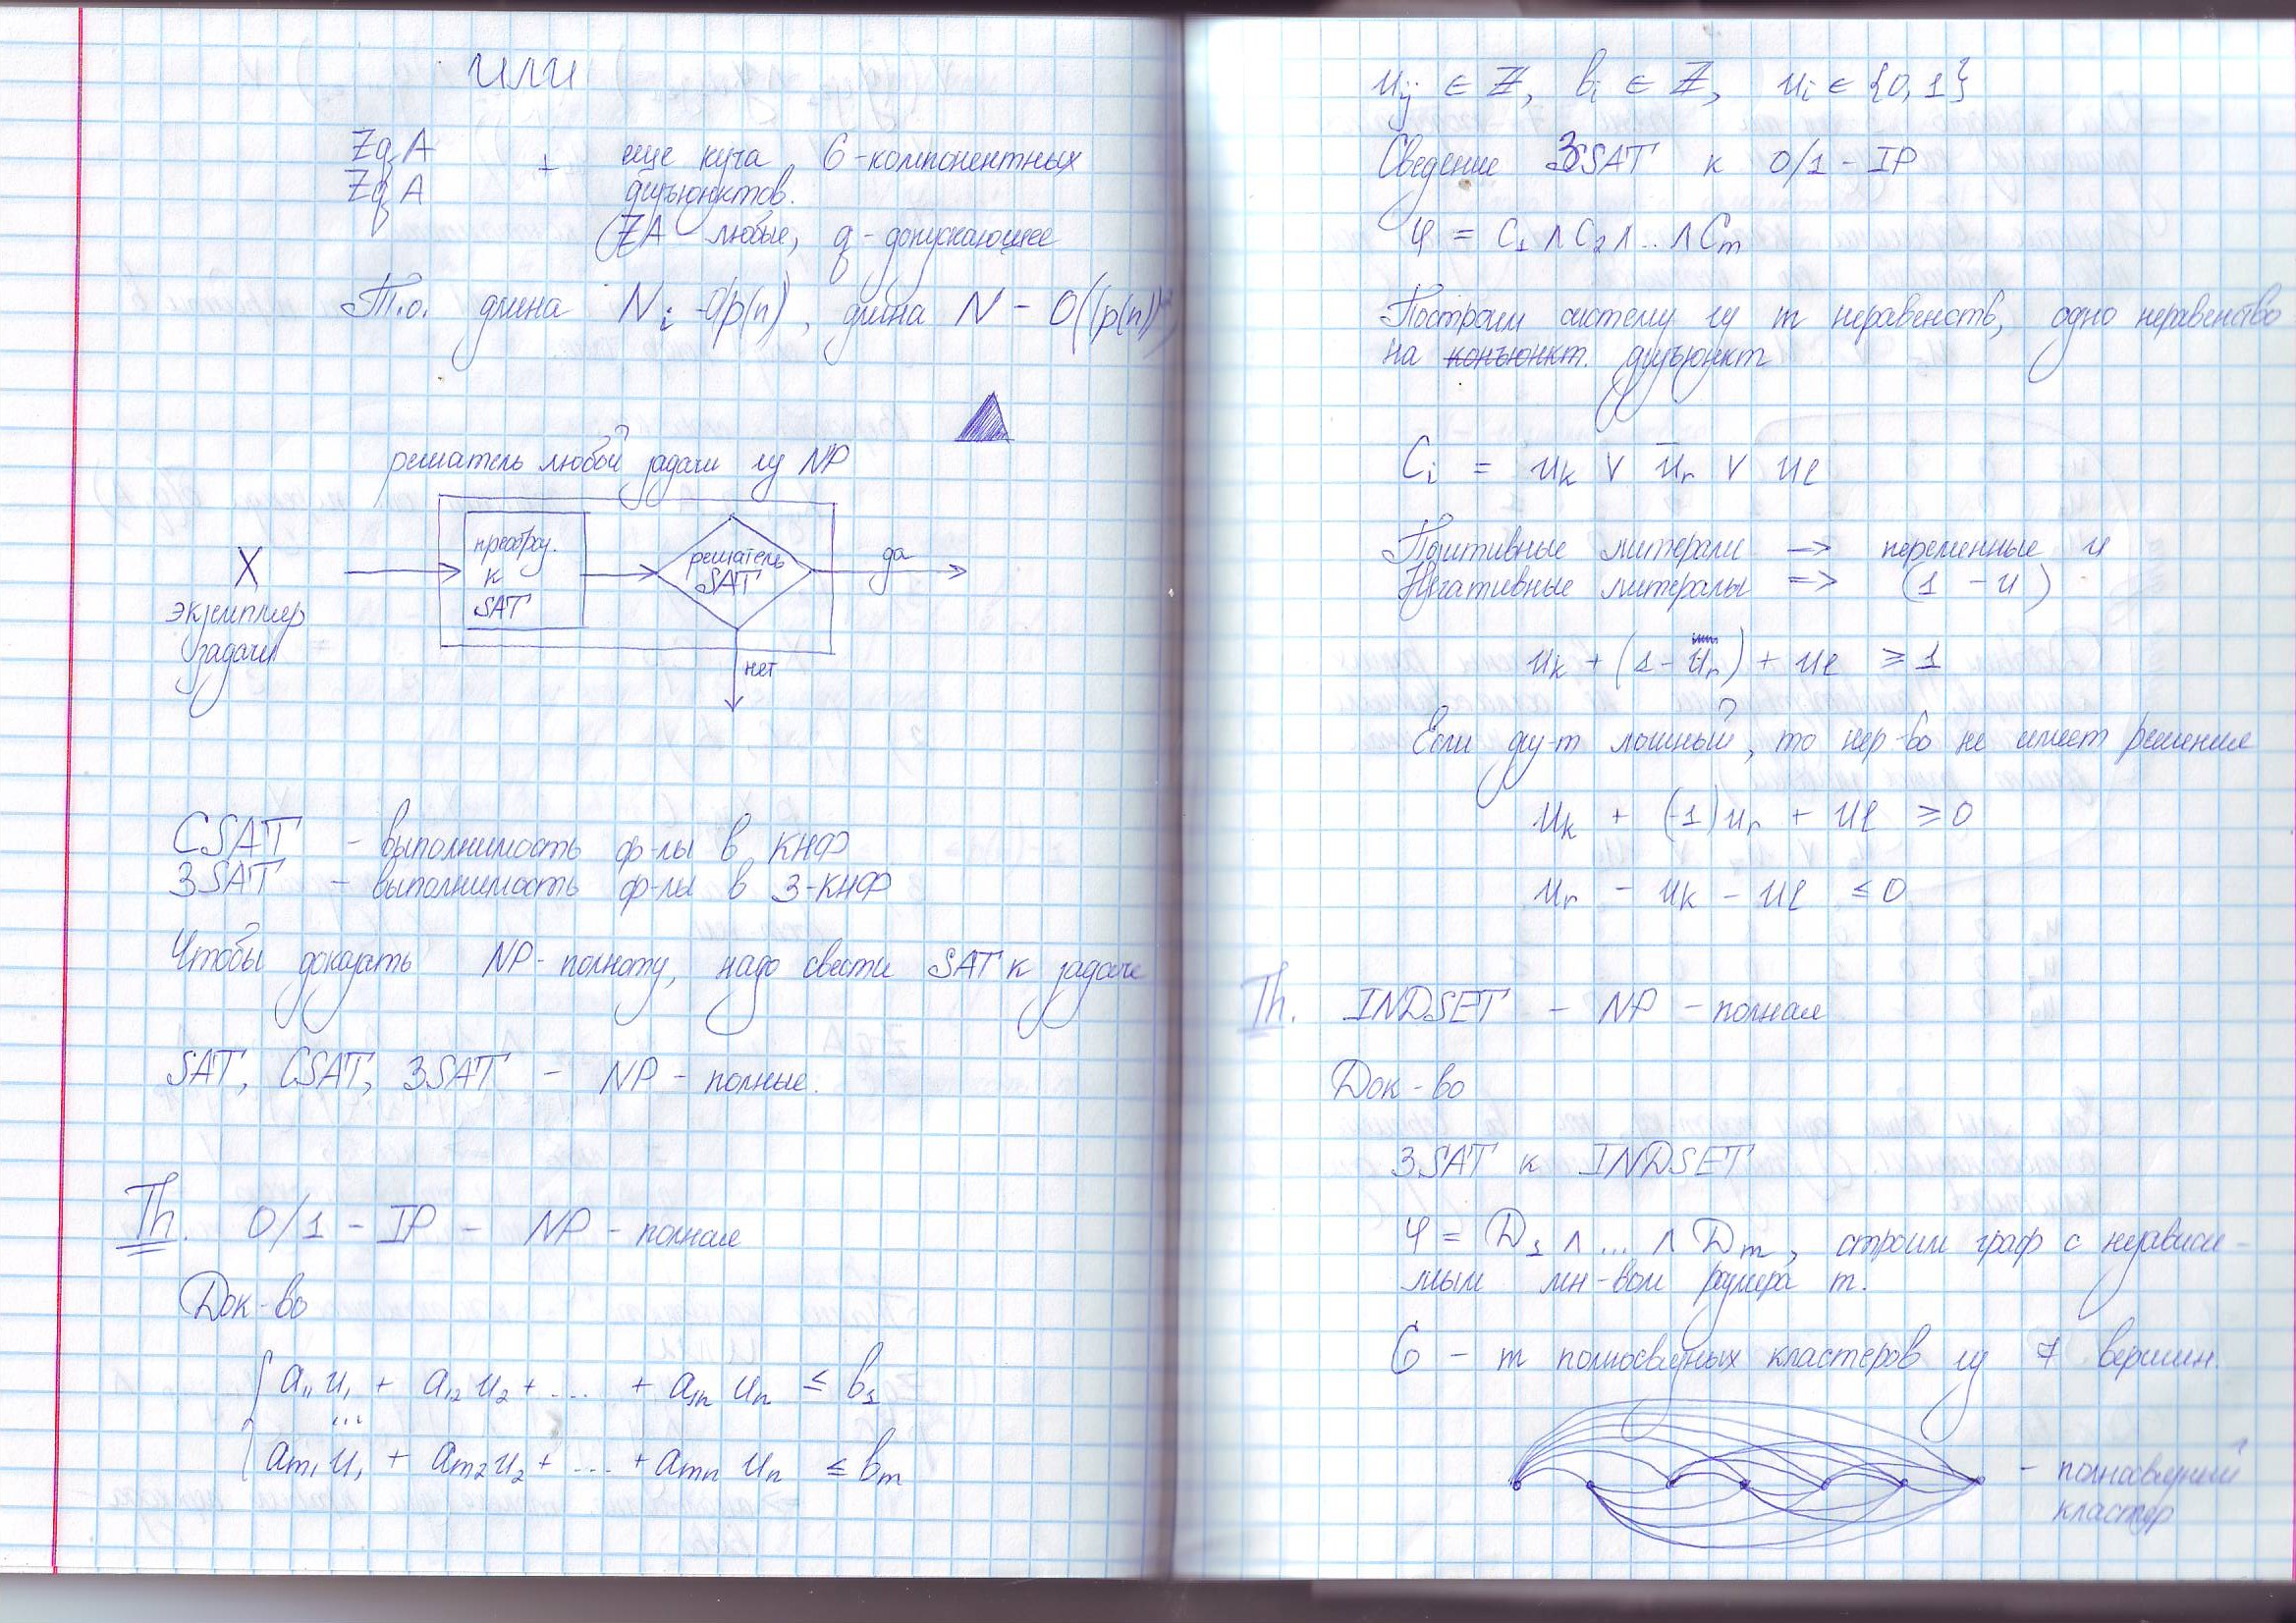 или
ZqA
ZqA
+ еще куча 6-компонентных
дизъюнктов.
(ZA любые, q - допускающее
Т.о. длина Nᵢ - O(p(n)), длина N - O((p(n))²)
решатель любой задачи из NP
X
экземпляр
задачи
преобраз.
к
SAT
решатель
SAT
да
нет
CSAT - выполнимость ф-лы в КНФ
3SAT - выполнимость ф-лы в 3-КНФ
Чтобы доказать NP-полноту, надо свести SAT к задаче
SAT, CSAT, 3SAT - NP - полные.
Th. 0/1 - IP - NP - полная
Док-во
a₁₁u₁ + a₁₂u₂ + ... + a₁ₙuₙ ≤ b₁
...
aₘ₁u₁ + aₘ₂u₂ + ... + aₘₙuₙ ≤ bₘ
uᵢⱼ ∈ Z, bᵢ ∈ Z, uᵢ ∈ {0, 1}
Сведение 3SAT к 0/1 - IP
φ = C₁ ∧ C₂ ∧ ... ∧ Cₘ
Построим систему из m неравенств, одно неравенство
на конъюнкт. дизъюнкт
Cᵢ = uₖ ∨ ūᵣ ∨ uₗ
Позитивные литералы → переменные u
Негативные литералы => (1 - u)
uₖ + (1 - uᵣ) + uₗ ≥ 1
Если диз-т ложный, то нер-во не имеет решения
uₖ + (-1)uᵣ + uₗ ≥ 0
uᵣ - uₖ - uₗ ≤ 0
Th. INDSET - NP - полная
Док-во
3SAT к INDSET
φ = D₁ ∧ ... ∧ Dₘ, строим граф с независи-
мым мн-вом размера m.
G - m полносвязных кластеров из 7 вершин.
- полносвязный
кластер